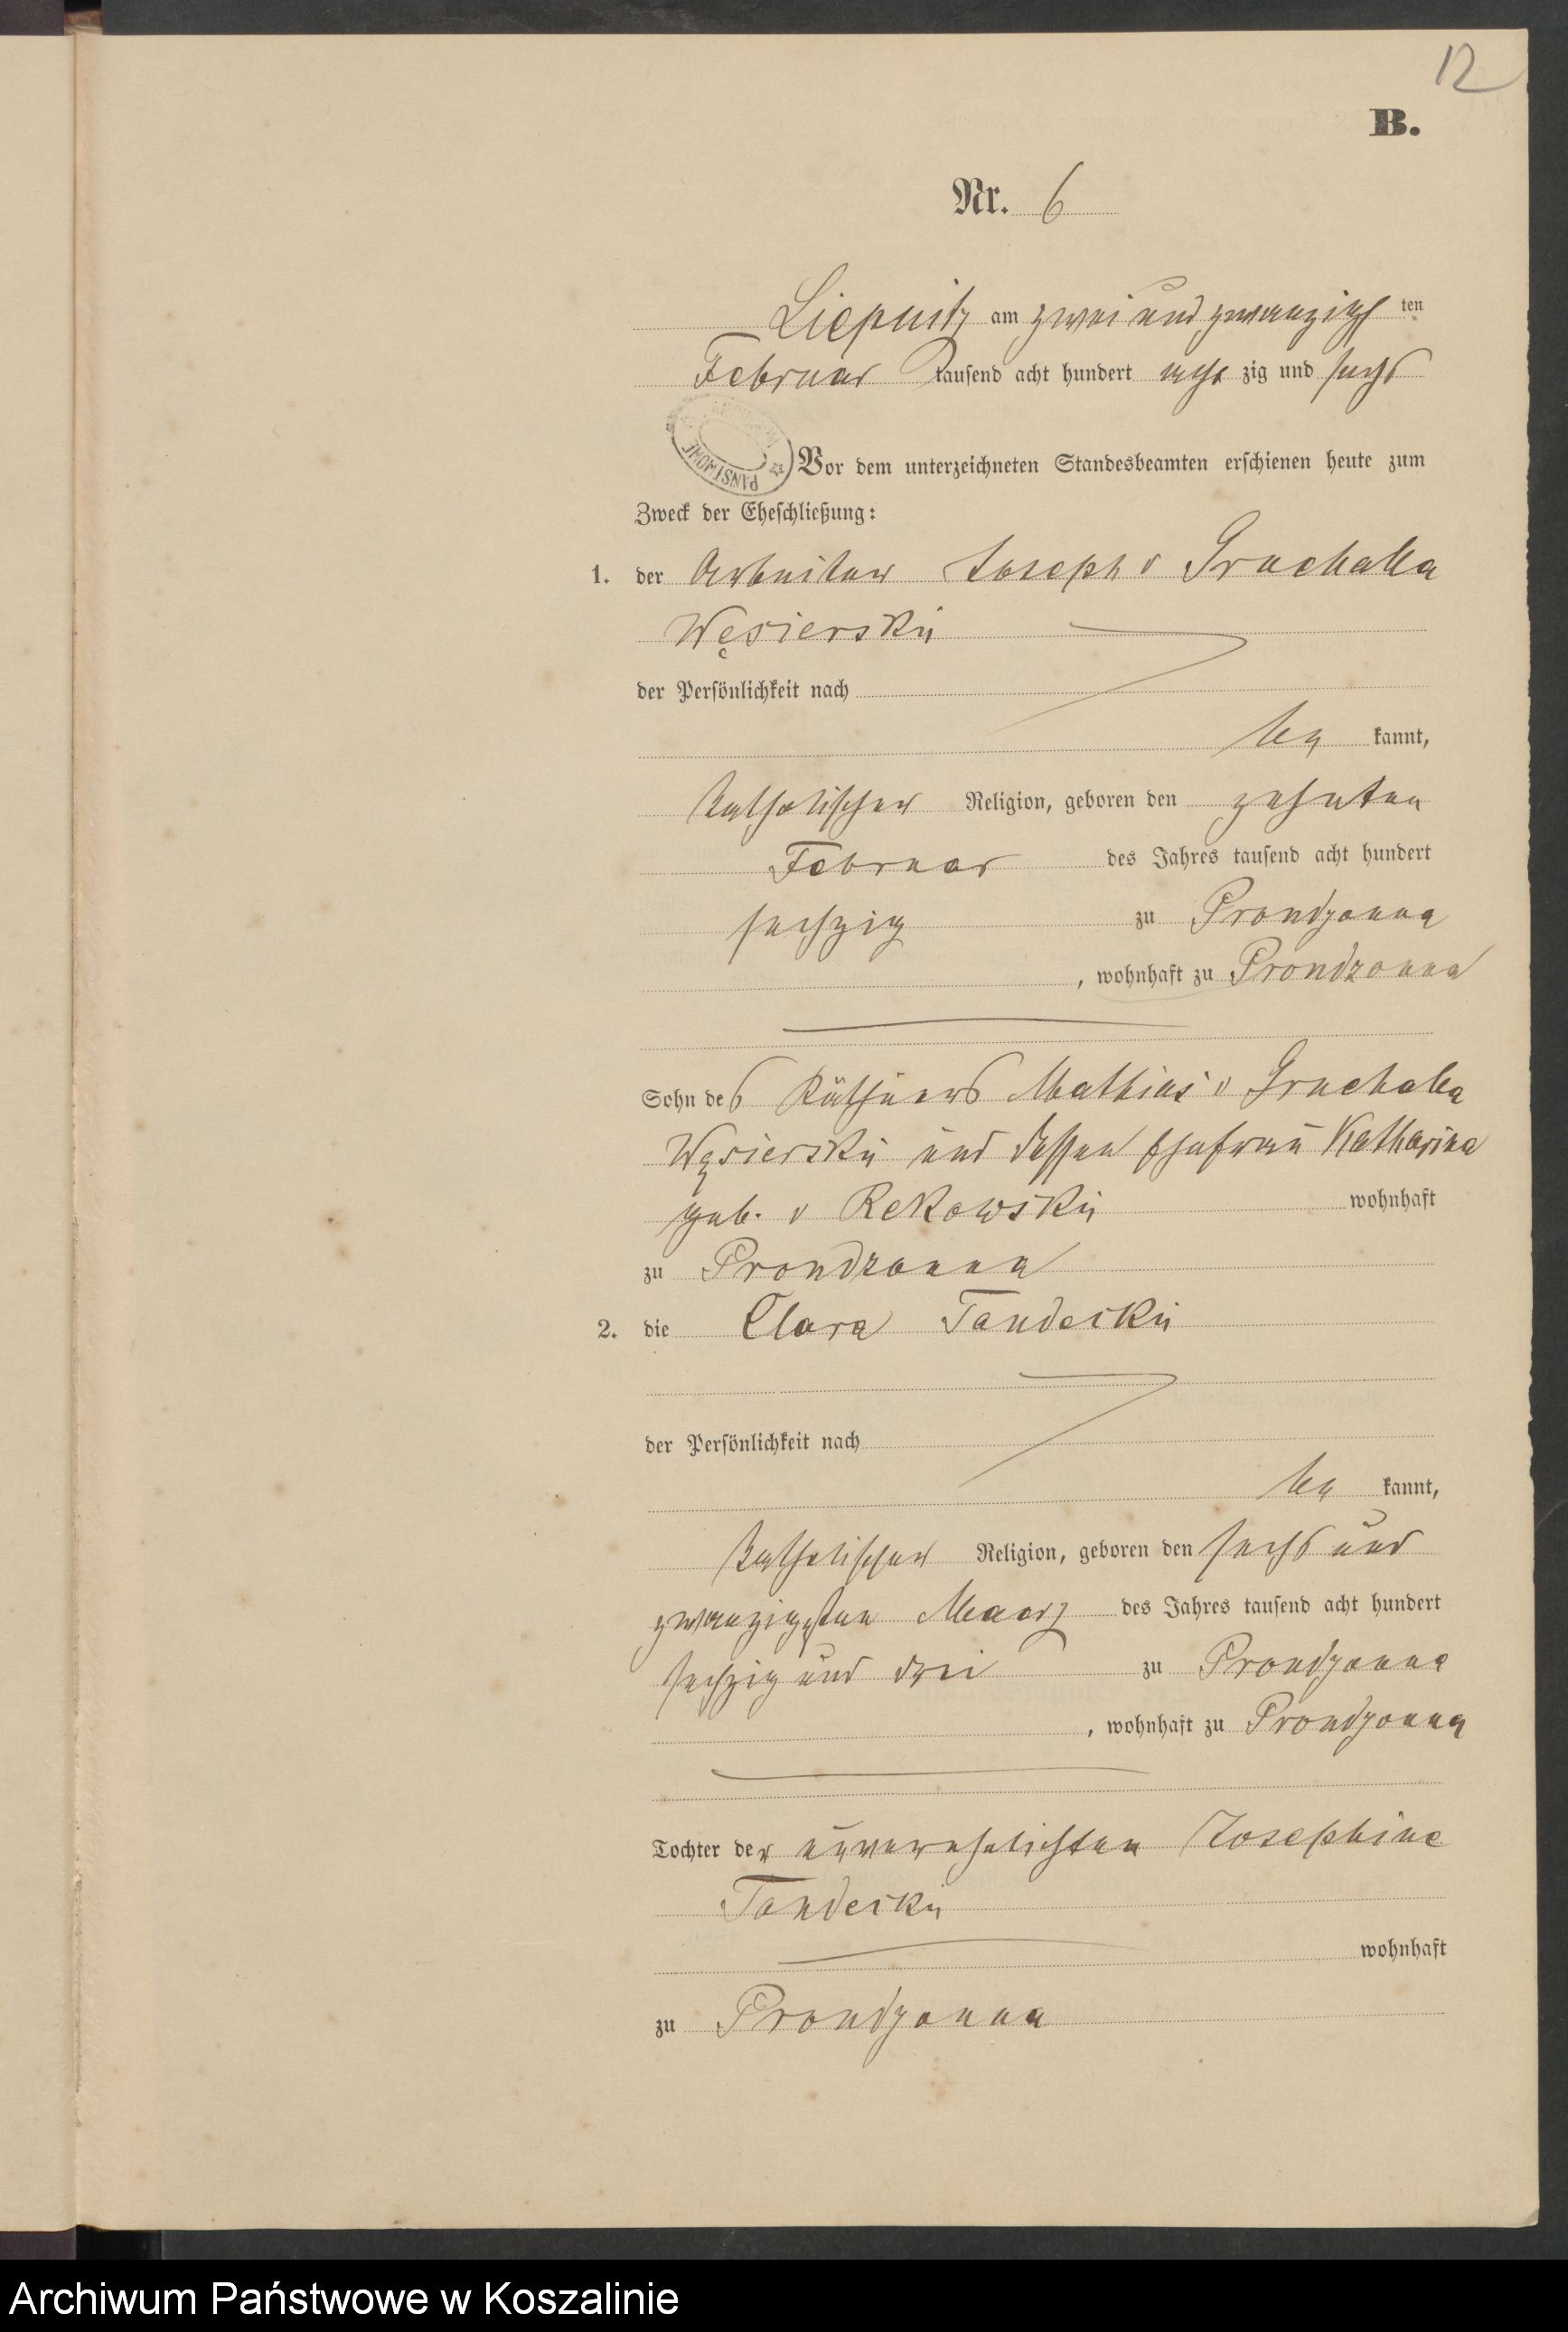 12
B.
Nr. 6
Liepnitz am zwei und zwanzigs ten
Februar tausend acht hundert acht zig und sechs
PAŃSTWOWE
Vor dem unterzeichneten Standesbeamten erschienen heute zum
Zweck der Eheschließung:
1. der Arbeiter Joseph v Gruchalla
Węsierski
der Persönlichkeit nach
be kannt,
katholischer Religion, geboren den zehnten
Februar des Jahres tausend acht hundert
sechzig zu Prondzonna
, wohnhaft zu Prondzonna
Sohn des Käthners Mathias v Gruchalla
Węsierski und dessen Ehefrau Katharina
geb. v Rekowski wohnhaft
zu Prondzonna
2. die Clara Tandecki
der Persönlichkeit nach
be kannt,
katholischer Religion, geboren den sechs und
zwanzigsten Maerz des Jahres tausend acht hundert
sechzig und drei zu Prondzonna
, wohnhaft zu Prondzonna
Tochter der unverehelichten Josephine
Tandecki
wohnhaft
zu Prondzonna
Archiwum Państwowe w Koszalinie